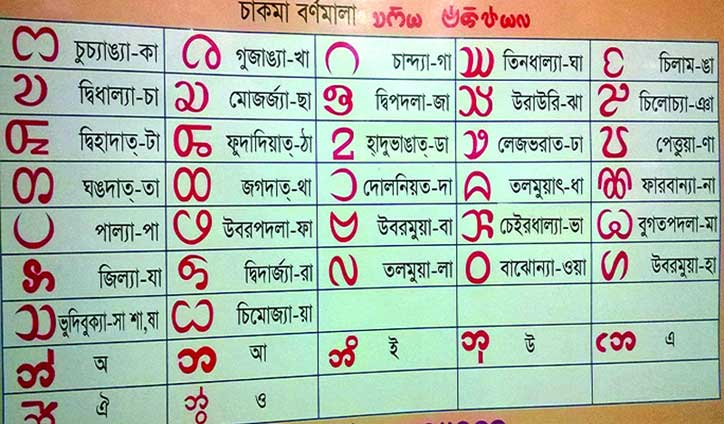 চাকমা বর্ণমালা
𑄇 চুচ্যাঙ্যা-কা 𑄈 গুজাঙ্যা-খা 𑄉 চান্দ্যা-গা 𑄊 তিনধাল্যা-ঘা 𑄋 চিলাম-ঙা
𑄌 দ্বিধাল্যা-চা 𑄍 মোজর্জ্যা-ছা 𑄎 দ্বিপদলা-জা 𑄏 উরাউরি-ঝা 𑄐 চিলোচ্যা-ঞা
𑄑 দ্বিহাদাত্-টা 𑄒 ফুদাদিয়াত্-ঠা 𑄓 হাদুভাঙাত্-ডা 𑄔 লেজভরাত-ঢা 𑄕 পেত্তুয়া-ণা
𑄖 ঘঙদাত্-তা 𑄗 জগদাত্-থা 𑄘 দোলনিয়ত-দা 𑄙 তলমুয়াৎ-ধা 𑄚 ফারবান্যা-না
𑄛 পাল্যা-পা 𑄜 উবরপদলা-ফা 𑄝 উবরমুয়া-বা 𑄞 চেইরধাল্যা-ভা 𑄟 বুগতপদলা-মা
𑄡 জিল্যা-যা 𑄢 দ্বিদার্জ্যা-রা 𑄣 তলমুয়া-লা 𑄤 বাঝোন্যা-ওয়া 𑄦 উবরমুয়া-হা
𑄥 ভুদিবুক্যা-সা শা,ষা 𑄠 চিমোজ্যা-য়া
অ 𑄃 আ 𑄃𑄨 ই 𑄃𑄪 উ 𑄃𑄬 এ
ঐ ও